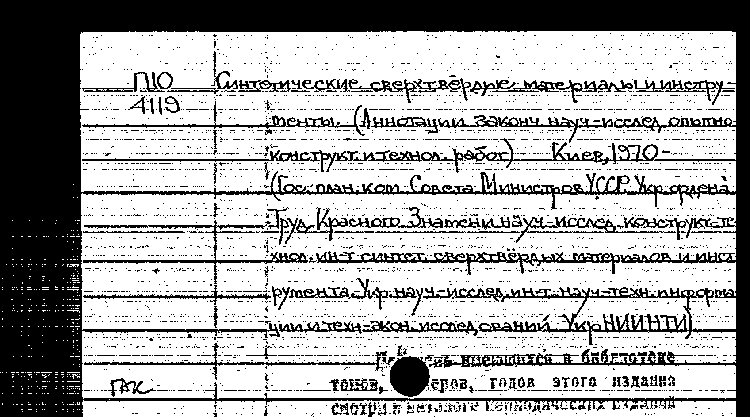 П10 Синтетические сверхтвёрдые материалы и инстру-
4119
менты. (Аннотации законч. науч-исслед. опытно
конструкт. и технол. работ) Киев, 1970-
(Гос. план. ком. Совета Министров УССР. Укр. ордена
Труд. Красного Знамени науч-исслед. конструкт.-те
хнол. ин-т синтет. сверхтвёрдых материалов и инст
румента. Укр. науч-исслед. ин-т. науч-техн. информа
ции и техн-экон. исследований УкрНИИНТИ)
имеющихся в библиотеке
ГАК томов, годов этого издания
смотри в каталоге периодических изданий